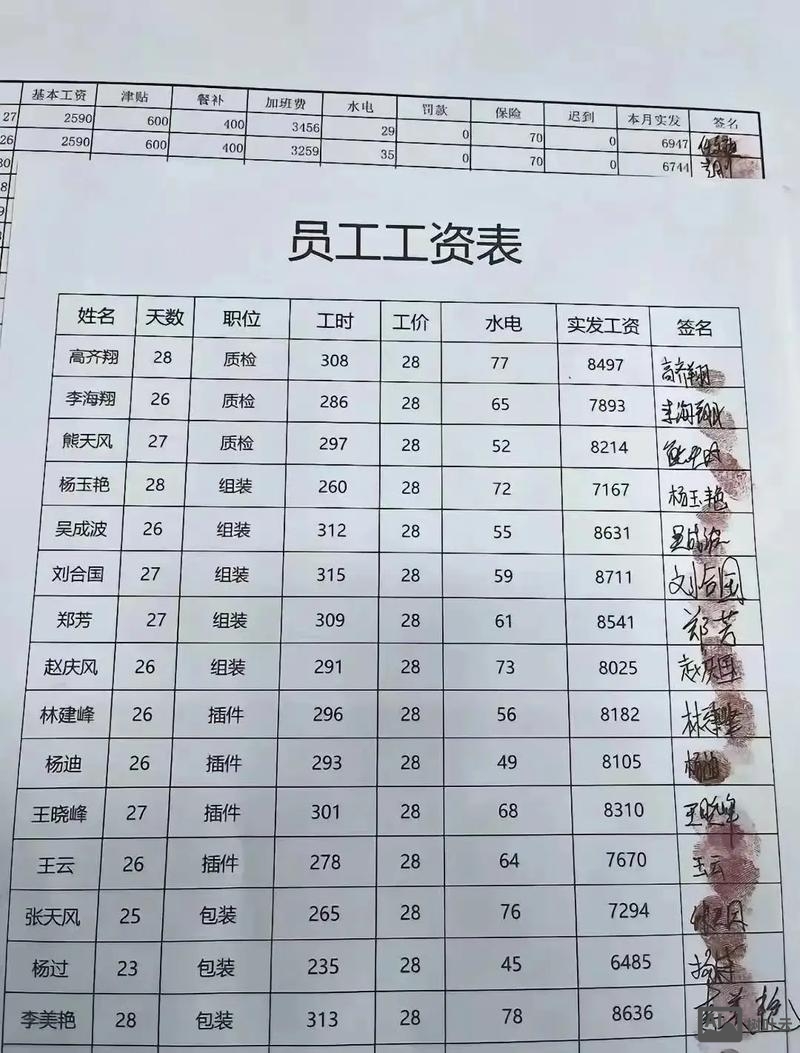 基本工资 津贴 餐补 加班费 水电 罚款 保险 迟到 本月实发 签名
27 2590 600 400 3456 29 0 70 0 6947
26 2590 600 400 3259 35 0 70 0 6744
30
员工工资表
姓名 天数 职位 工时 工价 水电 实发工资 签名
高齐翔 28 质检 308 28 77 8497 高齐翔
李海翔 26 质检 286 28 65 7893 李海翔
熊天风 27 质检 297 28 52 8214
杨玉艳 28 组装 260 28 72 7167 杨玉艳
吴成波 26 组装 312 28 55 8631 吴成波
刘合国 27 组装 315 28 59 8711 刘合国
郑芳 27 组装 309 28 61 8541 郑芳
赵庆风 26 组装 291 28 73 8025
林建峰 26 插件 296 28 56 8182
杨迪 26 插件 293 28 49 8105 杨迪
王晓峰 27 插件 301 28 68 8310 王晓峰
王云 26 插件 278 28 64 7670 王云
张天风 25 包装 265 28 76 7294
杨过 23 包装 235 28 45 6485
李美艳 28 包装 313 28 78 8636